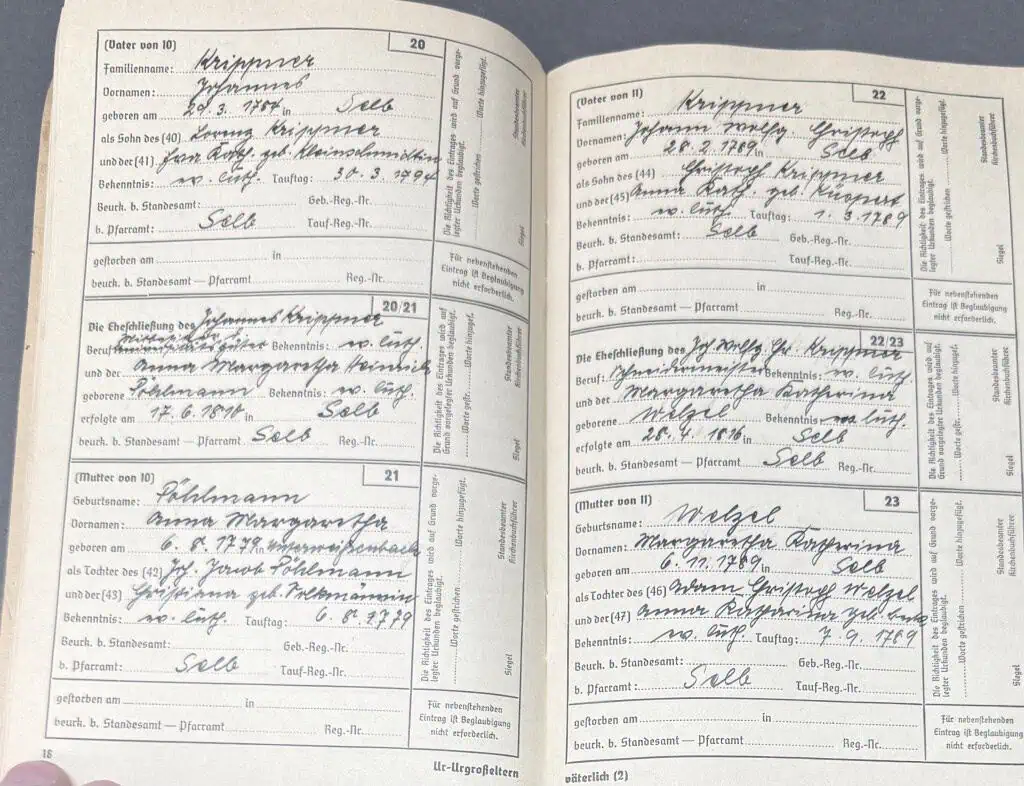 (Vater von 10) 20
Familienname: Krippner
Vornamen: Johannes
geboren am 29.3. in Selb
als Sohn des (40) Lorenz Krippner
und der (41) Eva Kath. geb. Kleinschmidtin
Bekenntnis: ev. luth. Tauftag: 30.3.
Beurk. b. Standesamt: Geb.-Reg.-Nr.
b. Pfarramt: Selb Tauf-Reg.-Nr.
Die Richtigkeit des Eintrages wird auf Grund vorge-
legter Urkunden beglaubigt.
Worte gestrichen Worte hinzugefügt.
Standesbeamter
Kirchenbuchführer
gestorben am in
beurk. b. Standesamt — Pfarramt Reg.-Nr.
Für nebenstehenden
Eintrag ist Beglaubigung
nicht erforderlich.
20/21
Die Eheschließung des Johannes Krippner
Beruf Bekenntnis: ev. luth.
und der Anna Margaretha
geborene Pöhlmann Bekenntnis: ev. luth.
erfolgte am 17.6.1810 in Selb
beurk. b. Standesamt — Pfarramt Selb Reg.-Nr.
Die Richtigkeit des Eintrages wird auf
Grund vorgelegter Urkunden beglaubigt.
Worte gestr. Worte hinzugef.
Standesbeamter
Kirchenbuchführer
Siegel
(Mutter von 10) 21
Geburtsname: Pöhlmann
Vornamen: Anna Margaretha
geboren am 6.8.1779 in
als Tochter des (42) Joh. Jacob Pöhlmann
und der (43) Christiana geb.
Bekenntnis: ev. luth. Tauftag: 6.8.1779
Beurk. b. Standesamt: Geb.-Reg.-Nr.
b. Pfarramt: Selb Tauf-Reg.-Nr.
Die Richtigkeit des Eintrages wird auf Grund vorge-
legter Urkunden beglaubigt.
Worte gestrichen Worte hinzugefügt.
Standesbeamter
Kirchenbuchführer
Siegel
gestorben am in
beurk. b. Standesamt — Pfarramt Reg.-Nr.
Für nebenstehenden
Eintrag ist Beglaubigung
nicht erforderlich.
Ur-Urgroßeltern
(Vater von 11) 22
Familienname: Krippner
Vornamen: Johann Wolfg. Christoph
geboren am 28.2.1789 in Selb
als Sohn des (44) Christoph Krippner
und der (45) Anna Kath. geb.
Bekenntnis: ev. luth. Tauftag: 1.3.1789
Beurk. b. Standesamt: Selb Geb.-Reg.-Nr.
b. Pfarramt: Tauf-Reg.-Nr.
Die Richtigkeit des Eintrages wird auf Grund vorge-
legter Urkunden beglaubigt.
Worte gestrichen Worte hinzugefügt.
Standesbeamter
Kirchenbuchführer
Siegel
gestorben am in
beurk. b. Standesamt — Pfarramt Reg.-Nr.
Für nebenstehenden
Eintrag ist Beglaubigung
nicht erforderlich.
22/23
Die Eheschließung des Joh Wolfg Chr. Krippner
Beruf: Schneidermeister Bekenntnis: ev. luth
und der Margaretha Katherina
geborene Welzel Bekenntnis: ev. luth.
erfolgte am 28.4.1816 in Selb
beurk. b. Standesamt — Pfarramt Selb Reg.-Nr.
Die Richtigkeit des Eintrages wird auf
Grund vorgelegter Urkunden beglaubigt.
Worte gestr. Worte hinzugef.
Standesbeamter
Kirchenbuchführer
Siegel
(Mutter von 11) 23
Geburtsname: Welzel
Vornamen: Margaretha Katherina
geboren am 6.11.1789 in Selb
als Tochter des (46) Adam Christoph Welzel
und der (47) Anna Katharina geb.
Bekenntnis: ev. luth. Tauftag: 7.9.1789
Beurk. b. Standesamt: Geb.-Reg.-Nr.
b. Pfarramt: Selb Tauf-Reg.-Nr.
Die Richtigkeit des Eintrages wird auf Grund vorge-
legter Urkunden beglaubigt.
Worte gestrichen Worte hinzugefügt.
Standesbeamter
Kirchenbuchführer
Siegel
gestorben am in
beurk. b. Standesamt — Pfarramt Reg.-Nr.
Für nebenstehenden
Eintrag ist Beglaubigung
nicht erforderlich.
väterlich (2)